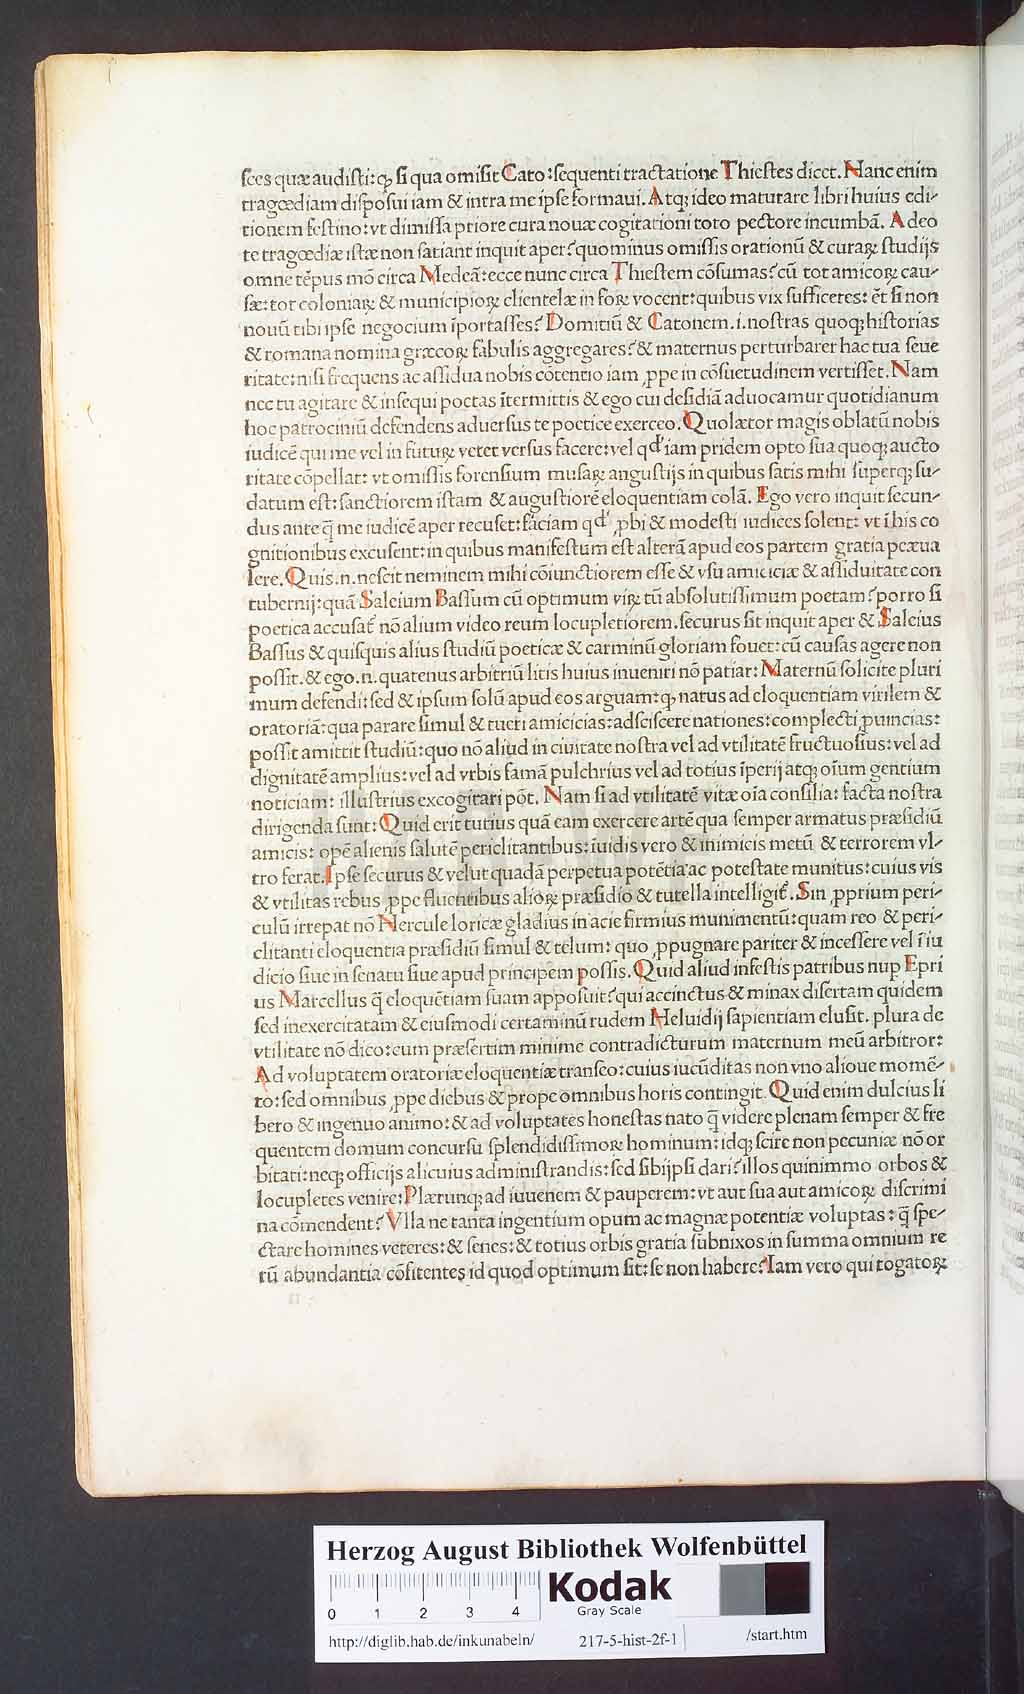 sces quæ audisti: ꝙ si qua omisit Cato: sequenti tractatione Thiestes dicet. Hanc enim
tragœdiam disposui iam & intra me ipse formaui. Atqꝫ ideo maturare libri huius edi-
tionem festino: vt dimissa priore cura nouæ cogitationi toto pectore incumbã. Adeo
te tragœdiæ istæ non satiant inquit aper? quominus omissis orationũ & curaꝝ studijs
omne tẽpus mõ circa Medeã: ecce nunc circa Thiestem cõsumas? cũ tot amicoꝝ cau-
sæ: tot coloniaꝝ & municipioꝝ clientelæ in foꝝ vocent: quibus vix sufficeres: et̃ si non
nouũ tibi ipse negocium ĩportasses? Domitiũ & Catonem .i. nostras quoqꝫ historias
& romana nomina græcoꝝ fabulis aggregares? & maternus perturbarer hac tua seue
ritate: nisi frequens ac assidua nobis cõtentio iam ꝓpe in cõsuetudinem vertisset. Nam
nec tu agitare & insequi poetas ĩtermittis & ego cui desidiã aduocamur quotidianum
hoc patrociniũ defendens aduersus te poetice exerceo. Quo lætor magis oblatũ nobis
iudicẽ qui me vel in futuꝝ vetet versus facere: vel qd' iam pridem opto sua quoqꝫ aucto
ritate cõpellat: vt omissis forensium musaꝝ angustijs in quibus satis mihi superqꝫ su-
datum est: sanctiorem istam & augustiorẽ eloquentiam colã. Ego vero inquit secun-
dus ante q̃ me iudicẽ aper recuset: faciam qd' ꝓbi & modesti iudices solent: vt ĩ his co
gnitionibus excusent: in quibus manifestum est alterã apud eos partem gratia pæua
lere. Quis .n. nescit neminem mihi cõiunctiorem esse & vsu amiciciæ & assiduitate con
tubernij: quã Saleium Bassum cũ optimum viꝝ tũ absolutissimum poetam? porro si
poetica accusat̃ nõ alium video reum locupletiorem. securus sit inquit aper & Saleius
Bassus & quisquis alius studiũ poeticæ & carminũ gloriam fouet: cũ causas agere non
possit. & ego .n. quatenus arbitriũ litis huius inueniri nõ patiar: Maternũ solicite pluri
mum defendi: sed & ipsum solũ apud eos arguam: ꝙ natus ad eloquentiam virilem &
oratoriã: qua parare simul & tueri amicicias: adsciscere nationes: complecti ꝓuincias:
possit amittit studiũ: quo nõ aliud in ciuitate nostra vel ad vtilitatẽ fructuosius: vel ad
dignitatẽ amplius: vel ad vrbis famã pulchrius vel ad totius ĩperij atqꝫ oĩum gentium
noticiam: illustrius excogitari põt. Nam si ad vtilitatẽ vitæ oĩa consilia: facta nostra
dirigenda sunt: Quid erit tutius quã eam exercere artẽ qua semper armatus præsidiũ
amicis: opẽ alienis salutẽ periclitantibus: ĩuidis vero & inimicis metũ & terrorem vl-
tro ferat. Ipse securus & velut quadã perpetua potẽtia ac potestate munitus: cuius vis
& vtilitas rebus ꝓpe fluentibus alioꝝ præsidio & tutella intelligit̃. Sin ꝓprium peri-
culũ irrepat nõ Hercule loricæ gladius in acie firmius munimentũ: quam reo & peri-
clitanti eloquentia præsidiũ simul & telum: quo ꝓpugnare pariter & incessere vel ĩ iu
dicio siue in senatu siue apud principem possis. Quid aliud infestis patribus nup Epri
us Marcellus q̃ eloquẽtiam suam apposuit? qui accinctus & minax disertam quidem
sed inexercitatam & eiusmodi certaminũ rudem Heluidij sapientiam elusit. plura de
vtilitate nõ dico: cum præsertim minime contradicturum maternum meũ arbitror:
Ad voluptatem oratoriæ eloquentiæ transeo: cuius iucũditas non vno alioue momẽ-
to: sed omnibus ꝓpe diebus & prope omnibus horis contingit. Quid enim dulcius li
bero & ingenuo animo: & ad voluptates honestas nato q̃ videre plenam semper & fre
quentem domum concursu splendidissimoꝝ hominum: idqꝫ scire non pecuniæ nõ or
bitati: neqꝫ officijs alicuius administrandis: sed sibijpsi dari? illos quinimmo orbos &
locupletes venire: Plærunqꝫ ad iuuenem & pauperem: vt aut sua aut amicoꝝ discrimi
na cõmendent? Vlla ne tanta ingentium opum ac magnæ potentiæ voluptas: q̃ spe-
ctare homines veteres: & senes: & totius orbis gratia subnixos in summa omnium re
rũ abundantia cõfitentes id quod optimum sit: se non habere? Iam vero qui togatoꝝ
Herzog August Bibliothek Wolfenbüttel
Kodak
Gray Scale
0 1 2 3 4
http://diglib.hab.de/inkunabeln/ 217-5-hist-2f-1 /start.htm